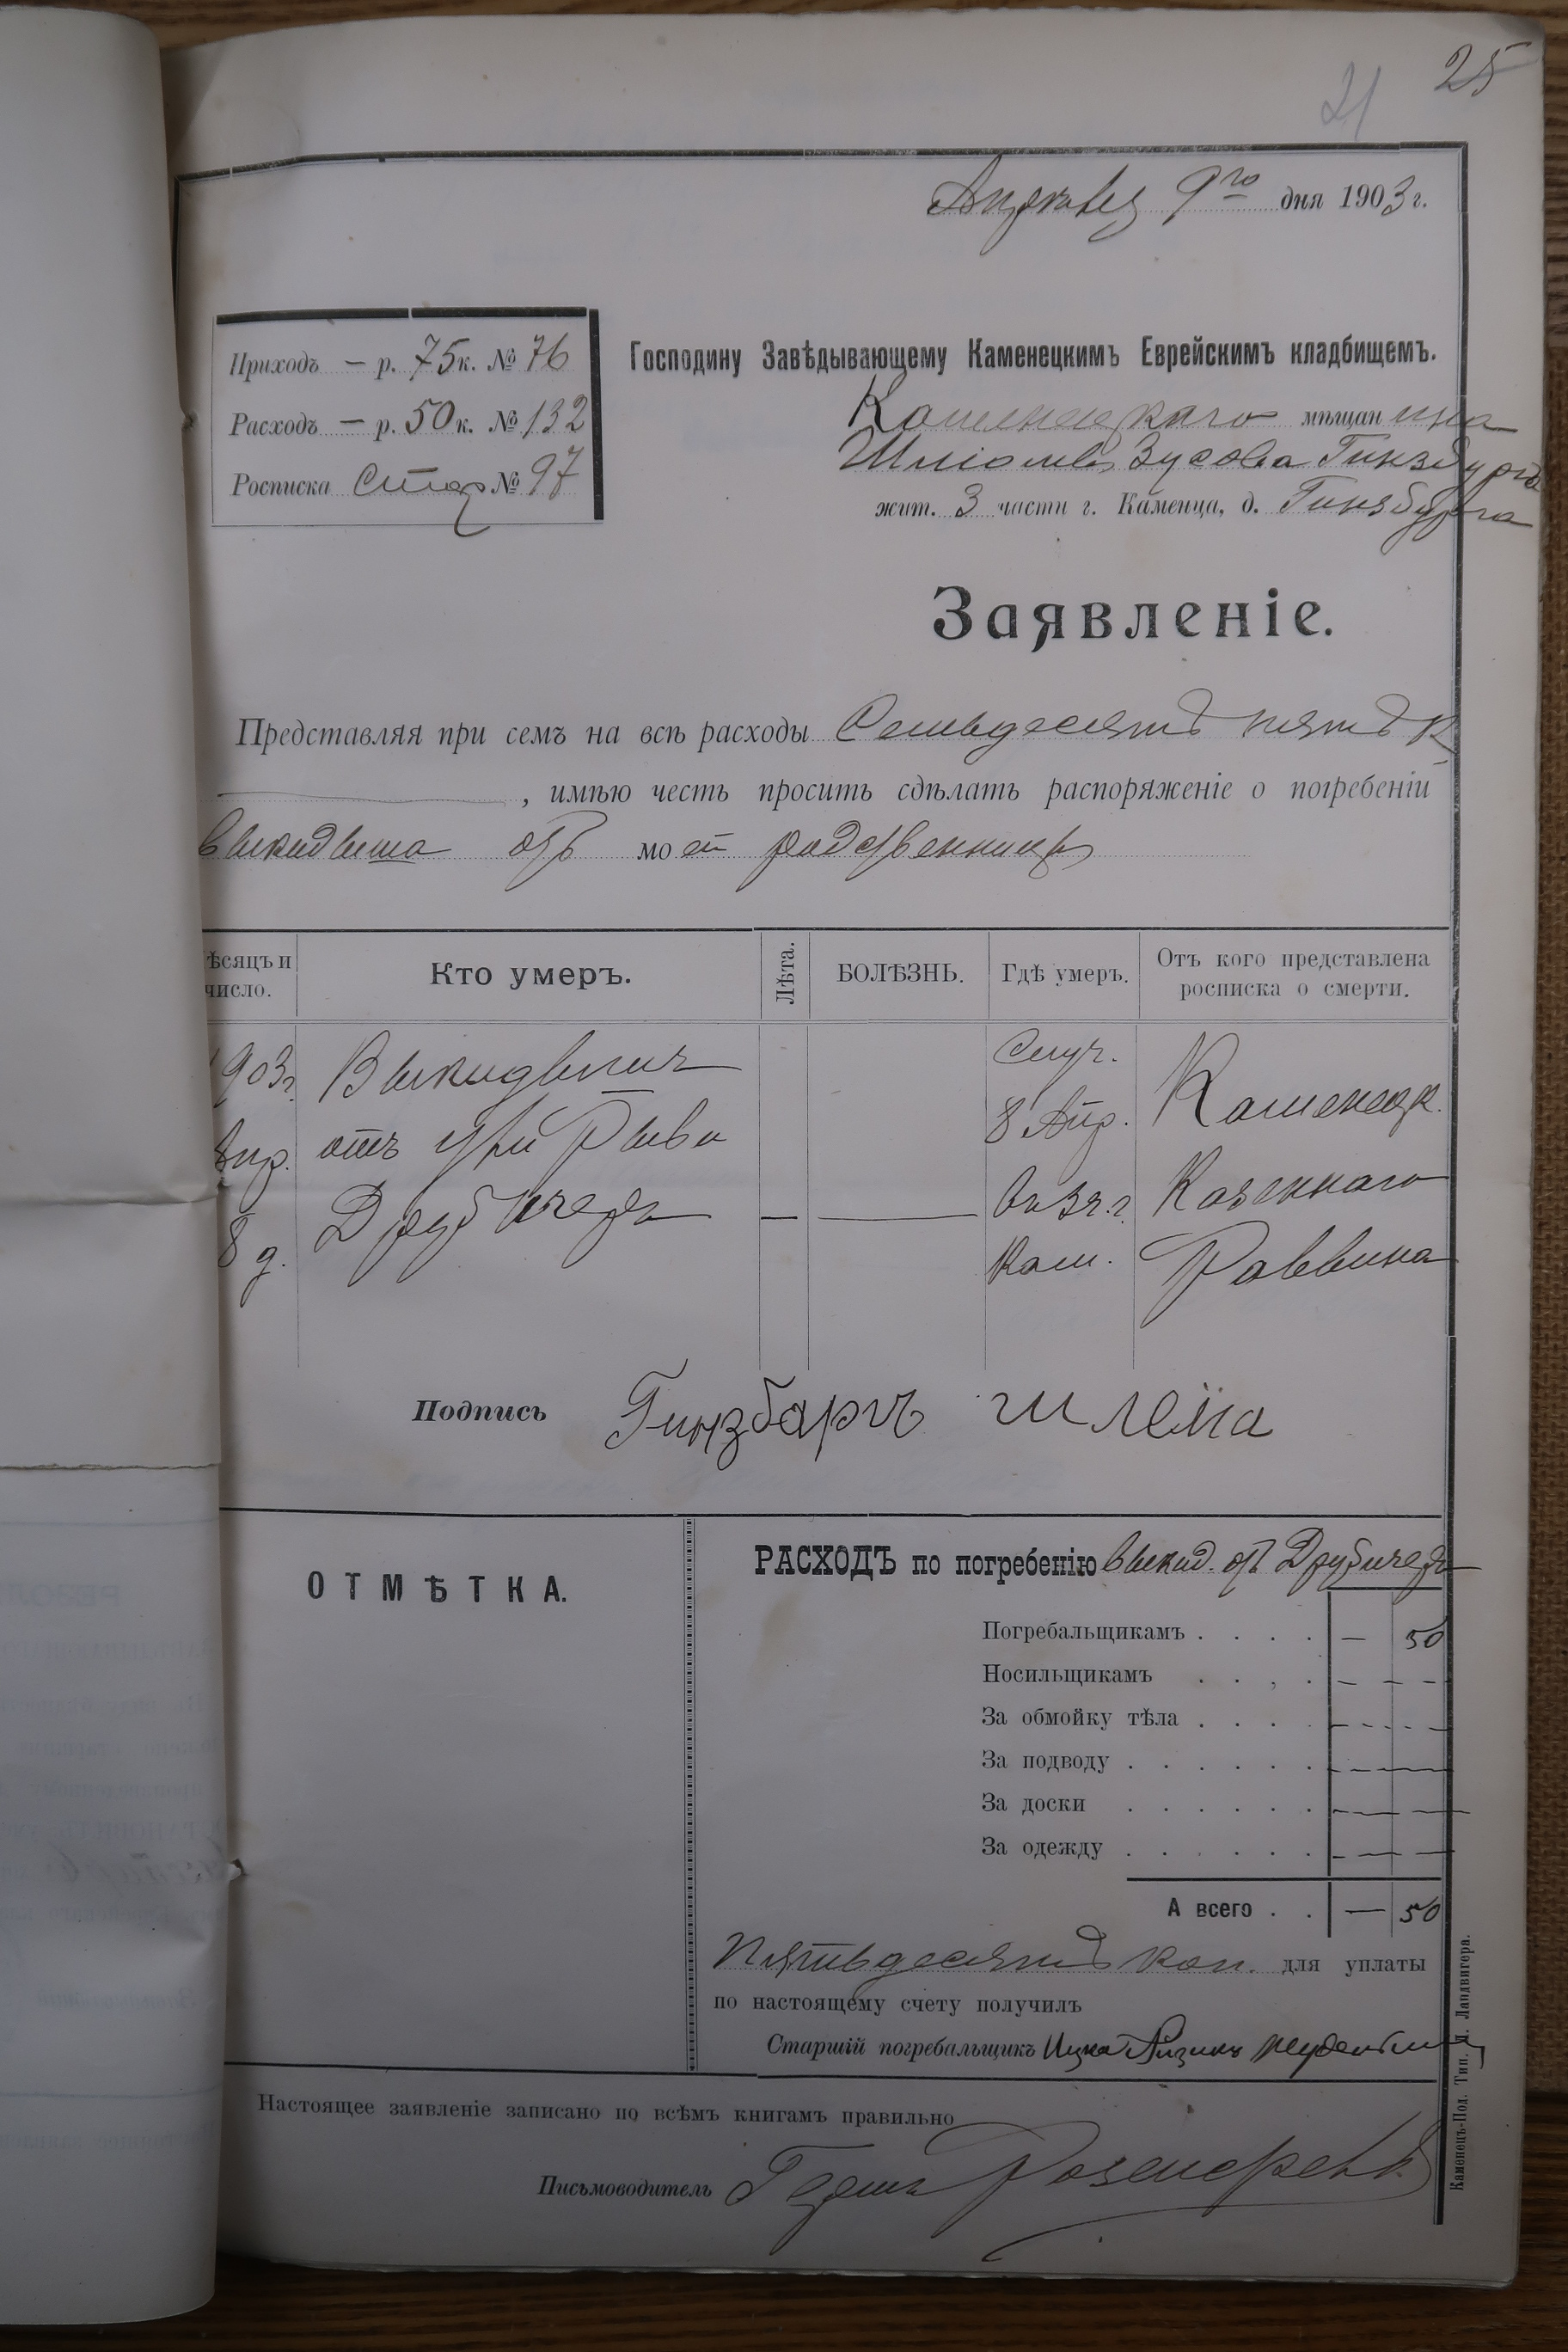 25
21
Апрѣля 9го дня 1903 г.
Приходъ — р. 75 к. № 76
Расходъ — р. 50 к. № 132
Росписка Стар № 97
Господину Завѣдывающему Каменецкимъ Еврейскимъ кладбищемъ.
Каменецкаго мѣщанина
Шліомы Зусова Гинзбурга
жит. 3 части г. Каменца, д. Гинзбурга
Заявленіе.
Представляя при семъ на всѣ расходы Семьдесятъ пять к
, имѣю честь просить сдѣлать распоряженіе о погребеніи
выкидыша отъ моей родственницы
ѣсяцъ и число.
Кто умеръ.
Лѣта.
БОЛѢЗНЬ.
Гдѣ умеръ.
Отъ кого представлена росписка о смерти.
903г. Выкидышъ Случ. Каменецк.
Апр. отъ 8 Апр. Казеннаго
8 д. Друбичеръ — — въ 3 ч. г. Раввина
Кам.
Подпись Гинзбаргъ шлема
ОТМѢТКА.
РАСХОДЪ по погребенію выкид. отъ Друбичеръ
Погребальщикамъ . . . . — 50
Носильщикамъ . . . . — — —
За обмойку тѣла . . . .
За подводу . . . . . .
За доски . . . . . .
За одежду . . . . . .
А всего . . — 50
Пятьдесятъ коп. для уплаты
по настоящему счету получилъ
Старшій погребальщикъ Ицко Айзикъ
Настоящее заявленіе записано по всѣмъ книгамъ правильно
Письмоводитель
Каменецъ-Под. Тип. Л. Ландвигера.